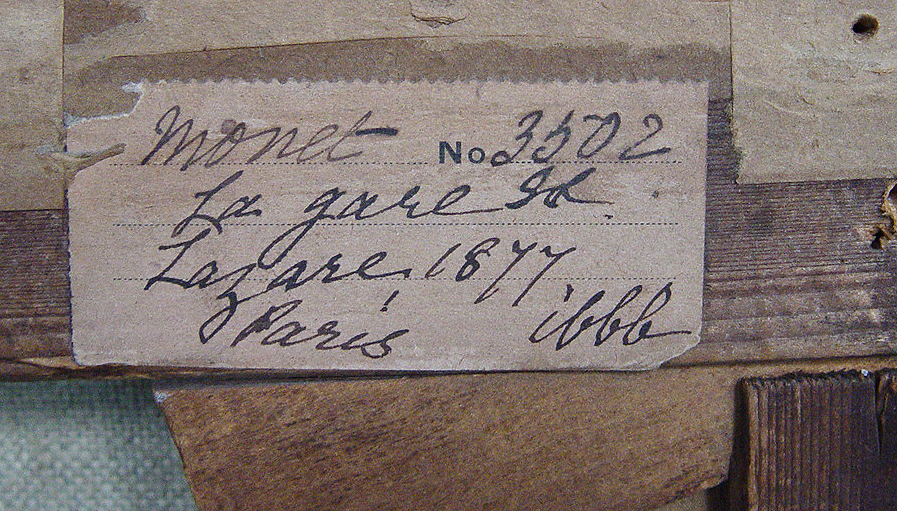 Monet No. 3502
La gare St.
Lazare, 1877
Paris ibbb